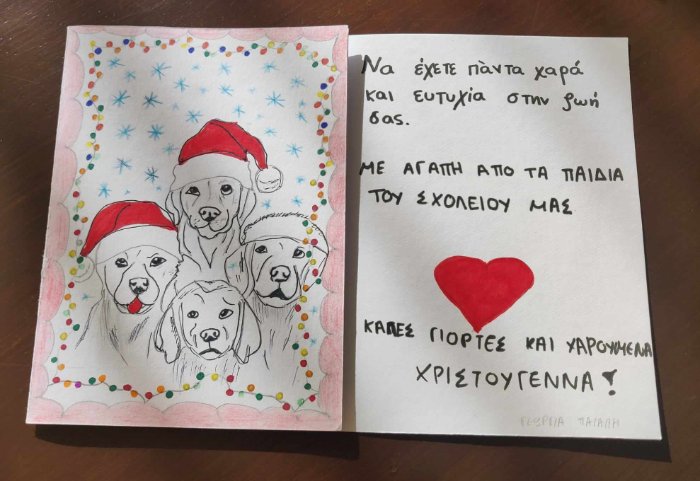 Να έχετε πὰντα χαρά
και ευτυχία στην ζωή
σας.
ΜΕ ΑΓΑΠΗ ΑΠΟ ΤΑ ΠΑΙΔΙΑ
ΤΟΥ ΣΧΟΛΕΙΟΥ ΜΑΣ
ΚΑΛΕΣ ΓΙΟΡΤΕΣ ΚΑΙ ΧΑΡΟΥΜΕΝΑ
ΧΡΙΣΤΟΥΓΕΝΝΑ!